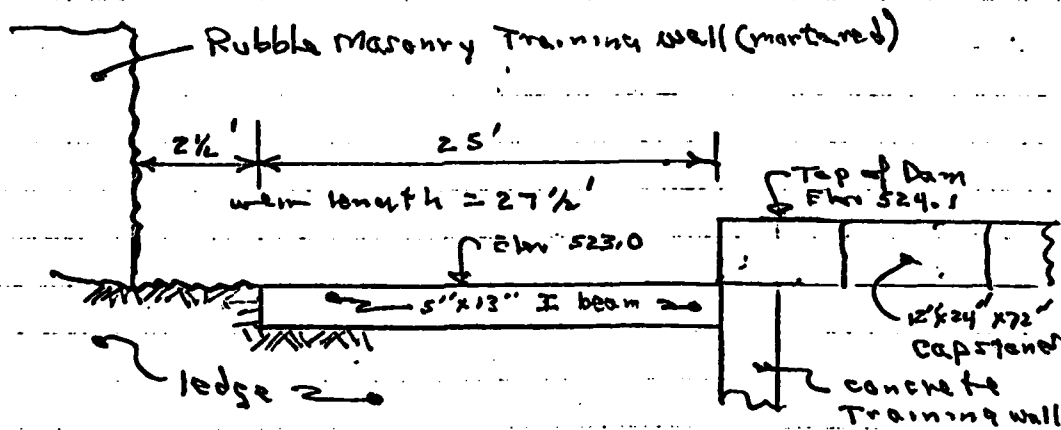 Rubble Masonry Training wall (mortared)
2½'
25'
weir length = 27½'
Top of Dam
Elev 524.1
Elev 523.0
5"x13" I beam
12"x24"x72"
capstones
ledge
concrete
Training wall